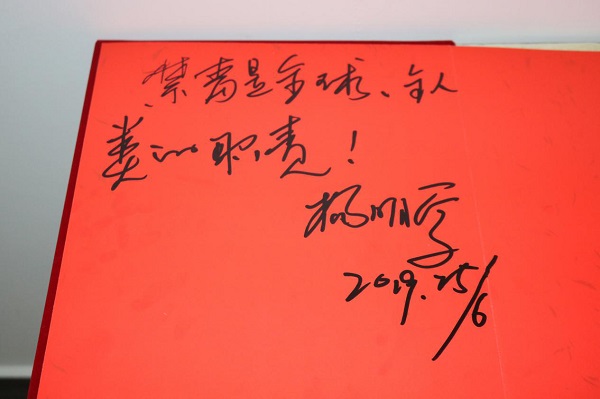 禁毒是全球、全人
类的职责！
杨明
2019.25/6